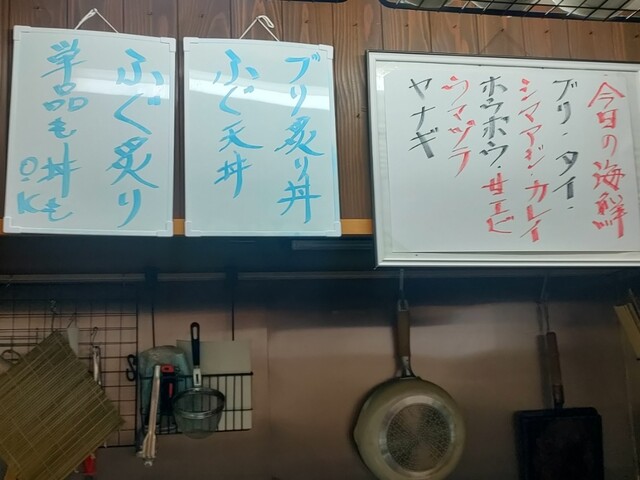 今日の海鮮
ブリ・タイ・
シマアジ・カレイ
ホウボウ・甘エビ
ウマヅラ
ヤナギ
ブリ炙り丼
ふぐ天丼
ふぐ炙り
単品も丼も
OK